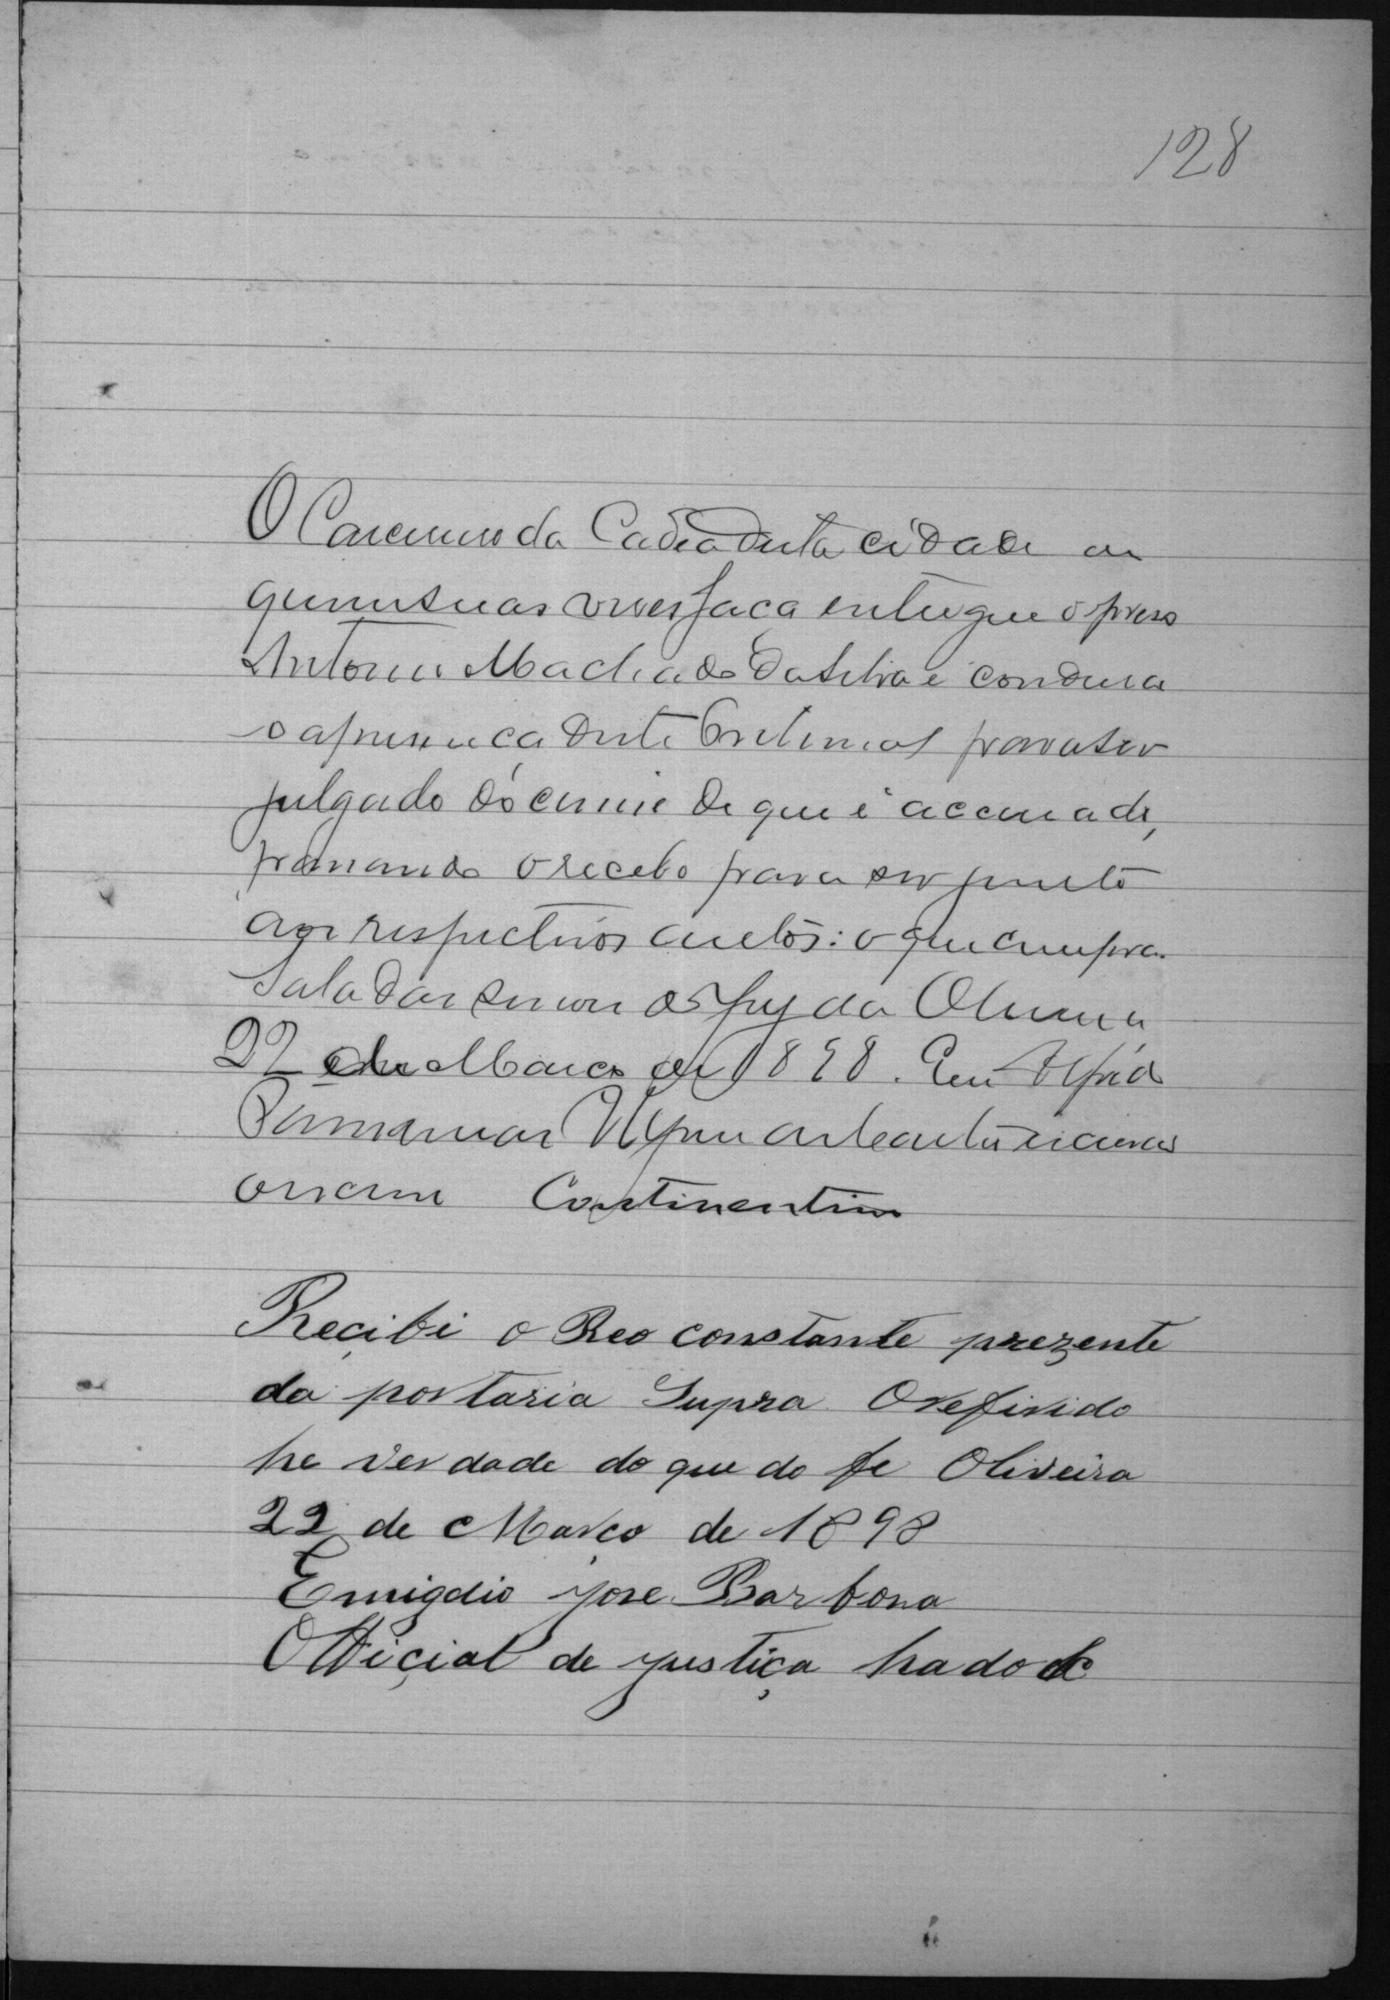 128
O Carcereiro da Cadea desta cidade ou
quem suas vezes faça entregue o preso
Antonio Machado da Silva e conduza
o a presença deste Tribunal para ser
julgado do crime de que é accusado,
o recebo para ser junto
aos respectivos autos: o que cumpra.
Sala das do Jury da Oliveira
22 de Março de 1898. Eu Alfredo
escrivão
Continentino
Recibi o Reo constante prezente
da portaria Supra O refirido
he verdade do que do fe Oliveira
22 de Março de 1898
Emigdio Jose Barbosa
Official de justiça